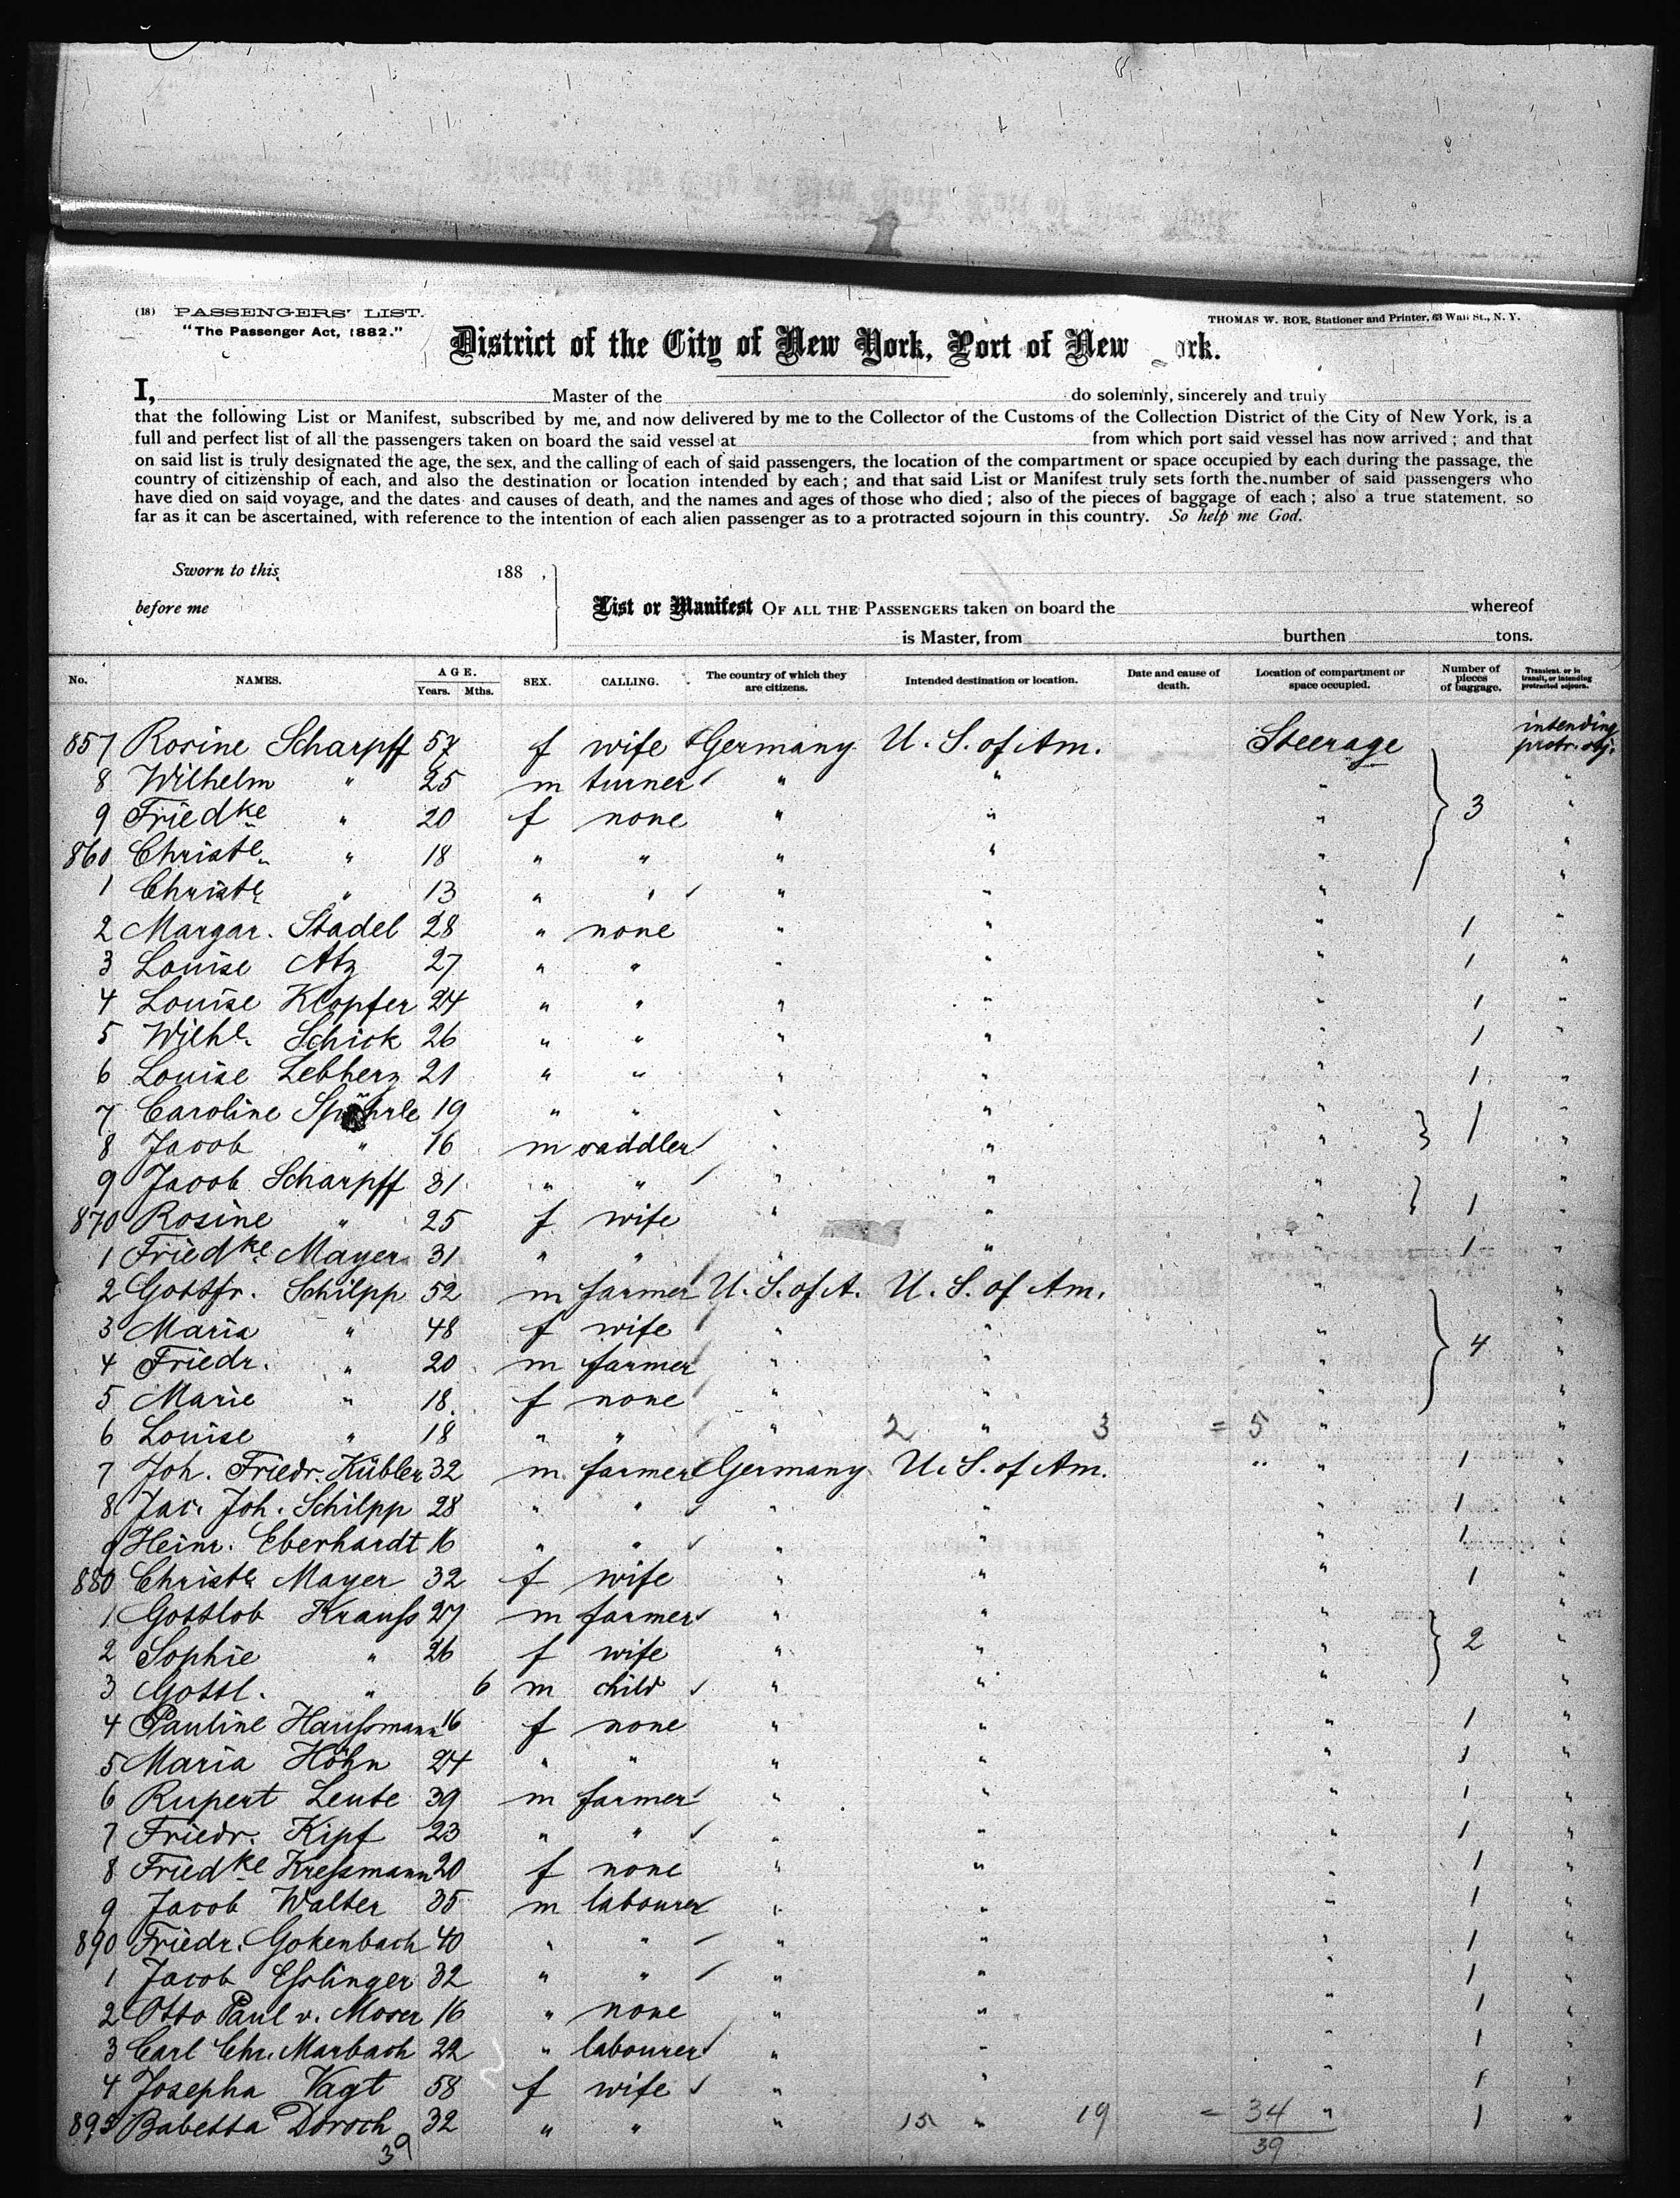 (18) PASSENGERS' LIST.
"The Passenger Act, 1882."
THOMAS W. ROE, Stationer and Printer, 63 Wall St., N. Y.
District of the City of New York, Port of New ork.
I, Master of the do solemnly, sincerely and truly
that the following List or Manifest, subscribed by me, and now delivered by me to the Collector of the Customs of the Collection District of the City of New York, is a
full and perfect list of all the passengers taken on board the said vessel at from which port said vessel has now arrived; and that
on said list is truly designated the age, the sex, and the calling of each of said passengers, the location of the compartment or space occupied by each during the passage, the
country of citizenship of each, and also the destination or location intended by each; and that said List or Manifest truly sets forth the number of said passengers who
have died on said voyage, and the dates and causes of death, and the names and ages of those who died; also of the pieces of baggage of each; also a true statement, so
far as it can be ascertained, with reference to the intention of each alien passenger as to a protracted sojourn in this country. So help me God.
Sworn to this 188 ,
before me
List or Manifest OF ALL THE PASSENGERS taken on board the whereof
is Master, from burthen tons.
No. NAMES. AGE. Years. Mths. SEX. CALLING. The country of which they are citizens. Intended destination or location. Date and cause of death. Location of compartment or space occupied. Number of pieces of baggage. Transient, or in transit, or intending protracted sojourn.
857 Rosine Scharpff 57 f wife Germany U. S. of Am. Steerage intending protr. soj.
8 Wilhelm " 25 m turner " " " "
9 Friedke " 20 f none " " " 3 "
860 Christe " 18 " " " " " "
1 Christe " 13 " " " " " "
2 Margar. Stadel 28 " none " " " 1 "
3 Louise Atz 27 " " " " " 1 "
4 Louise Klopfer 24 " " " " " 1 "
5 Wilhe. Schick 26 " " " " " 1 "
6 Louise Lebherz 21 " " " " " 1 "
7 Caroline 19 " " " " " 1 "
8 Jacob " 16 m saddler " " " "
9 Jacob Scharpff 31 " " " " " "
870 Rosine " 25 f wife " " " 1 "
1 Friedke Mayer 31 " " " " " 1 "
2 Gottfr. Schilpp 52 m farmer U. S. of A. U. S. of Am. " "
3 Maria " 48 f wife " " " "
4 Friedr. " 20 m farmer " " " 4 "
5 Marie " 18 f none " " " "
6 Louise " 18 " " " 2 " 3 = 5 " "
7 Joh. Friedr. Kübler 32 m farmer Germany U. S. of Am. " 1 "
8 Jac. Joh. Schilpp 28 " " " " " 1 "
9 Heinr. Eberhardt 16 " " " " " 1 "
880 Christe Mayer 32 f wife " " " 1 "
1 Gottlob Krauss 27 m farmer " " " "
2 Sophie " 26 f wife " " " 2 "
3 Gottl. " 6 m child " " " "
4 Pauline Haussmann 16 f none " " " 1 "
5 Maria Höhn 24 " " " " " 1 "
6 Rupert Leute 39 m farmer " " " 1 "
7 Friedr. Kipf 23 " " " " " 1 "
8 Friedke Kressmann 20 f none " " " 1 "
9 Jacob Walter 35 m labourer " " " 1 "
890 Friedr. Gokenbach 40 " " " " " 1 "
1 Jacob Esslinger 32 " " " " " 1 "
2 Otto Paul v. Moser 16 " none " " " 1 "
3 Carl Chr. Marbach 22 " labourer " " " 1 "
4 Josepha Vagt 58 f wife " " " 1 "
895 Babetta Dorsch 32 " " " 15 " 19 = 34 " 1 "
39 39